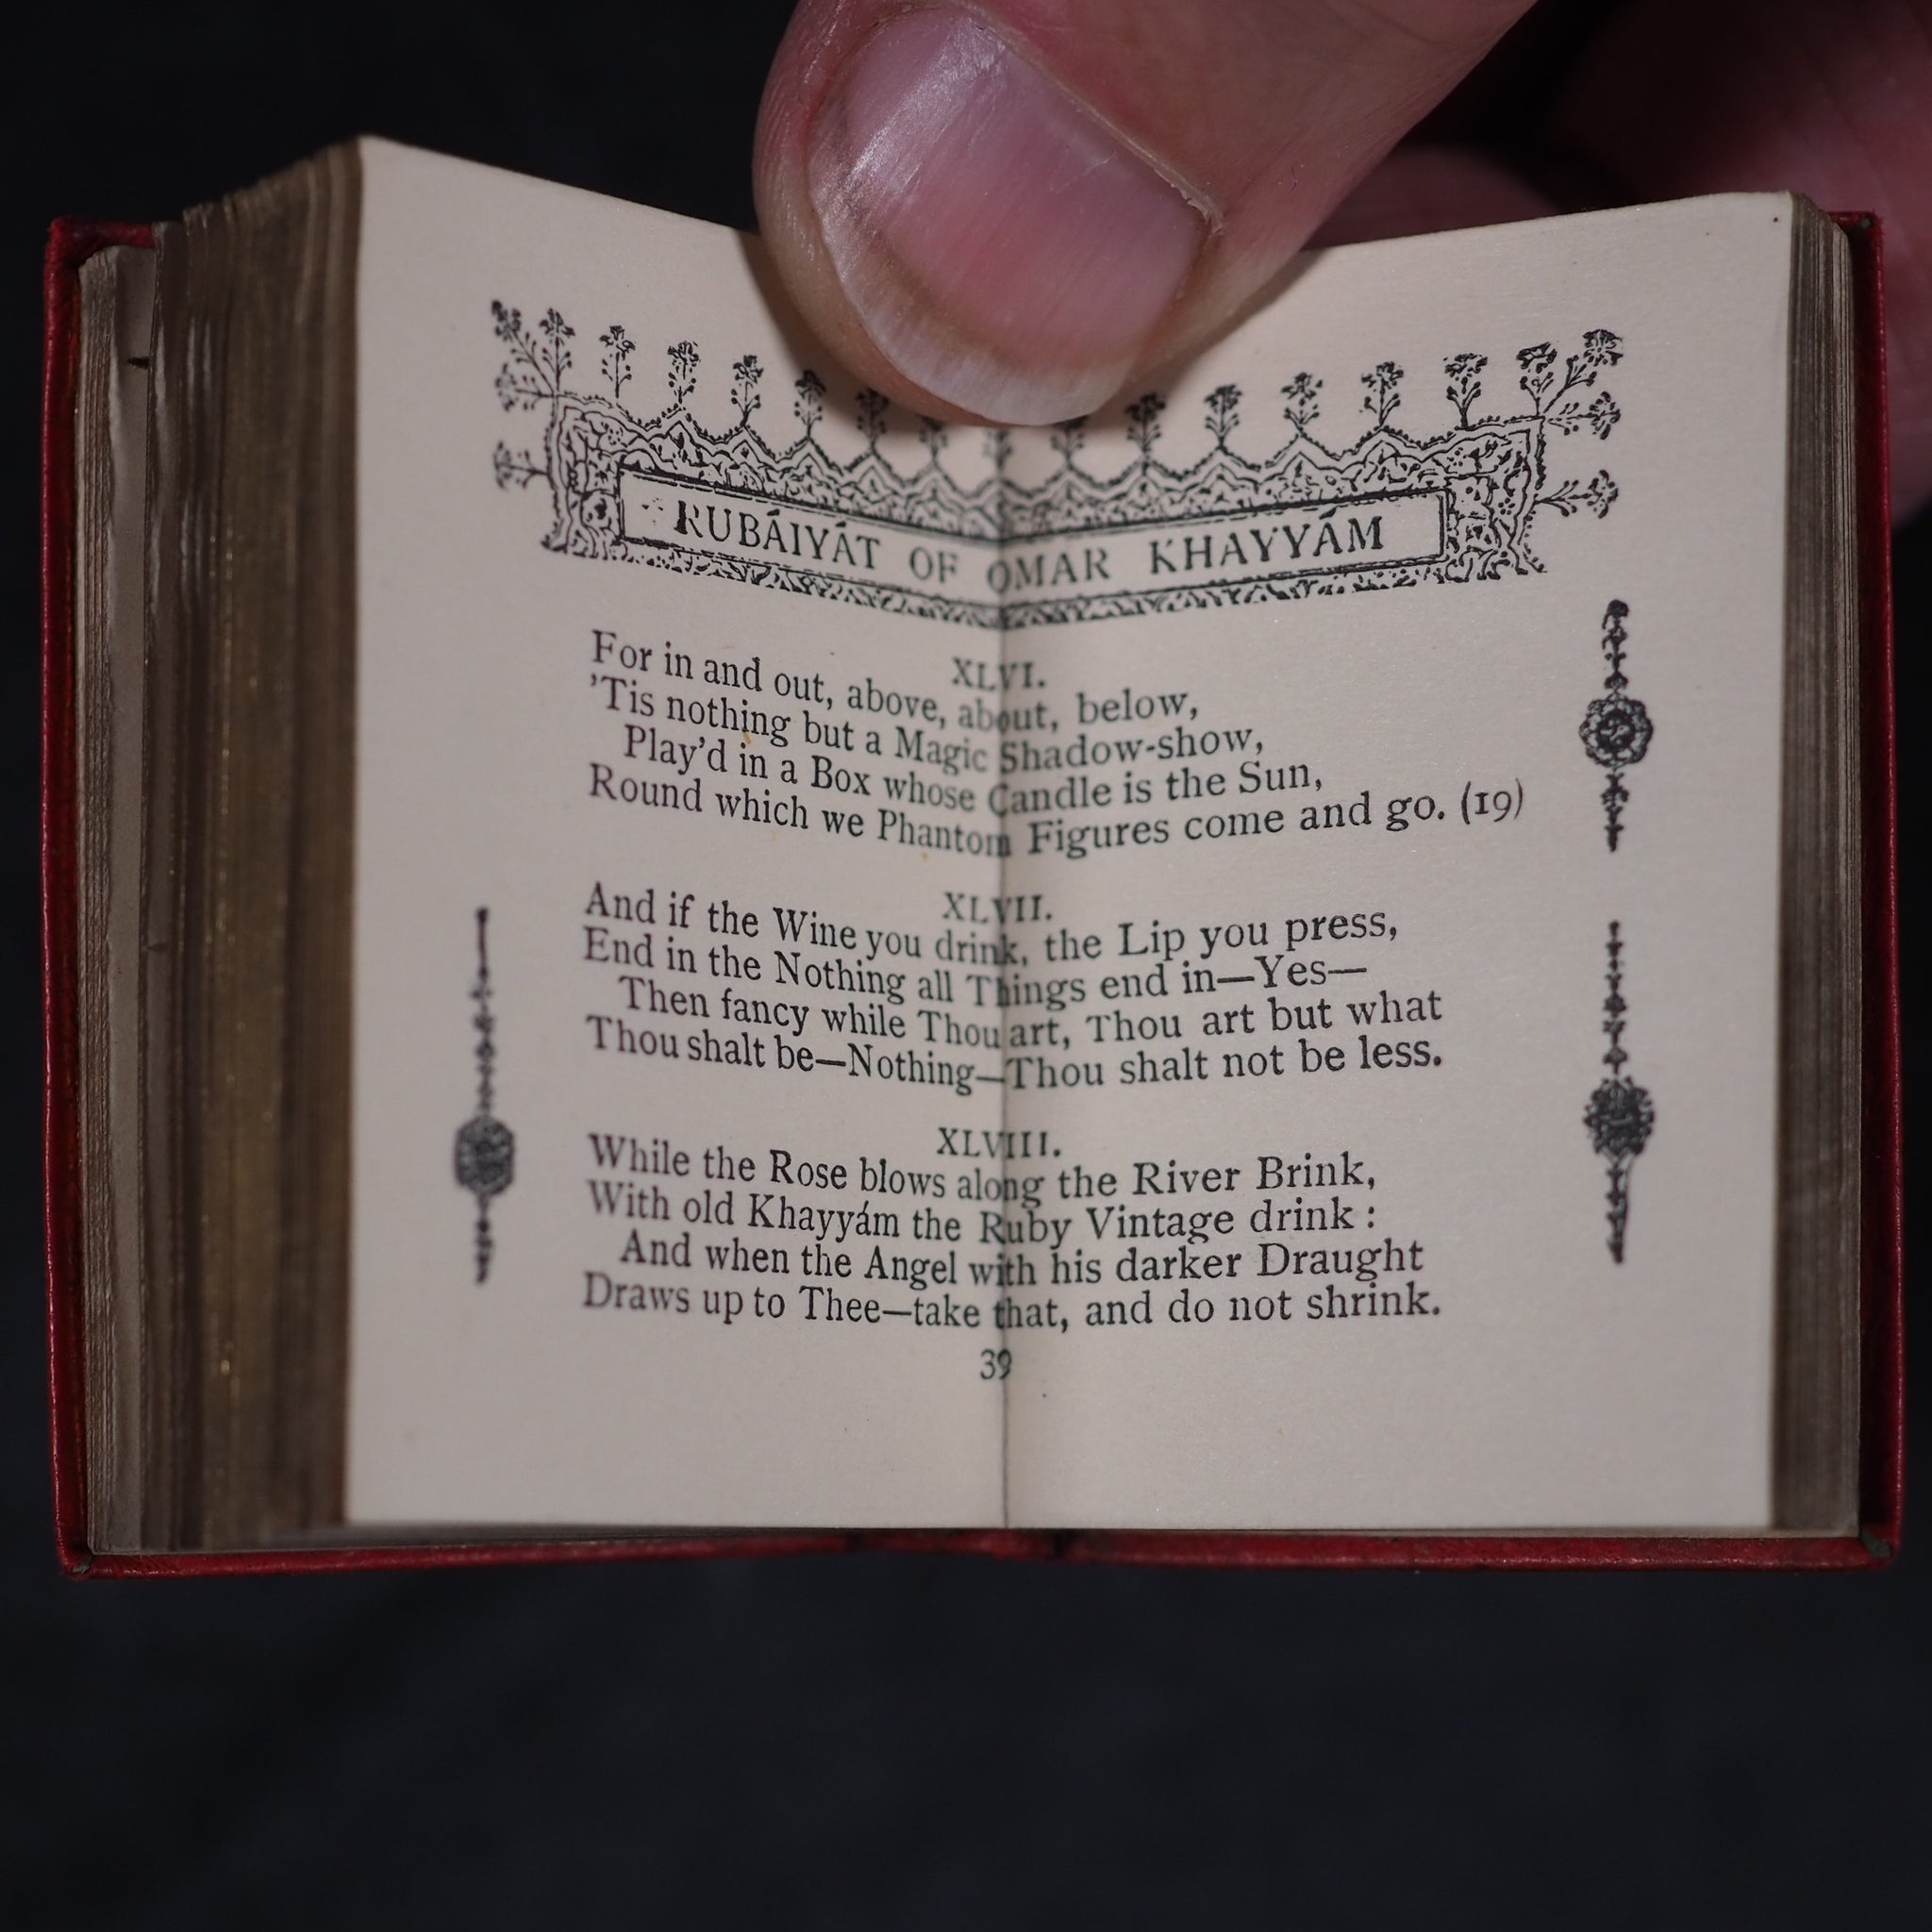 RUBÁIYÁT OF OMAR KHAYYÁM
XLVI.
For in and out, above, about, below,
'Tis nothing but a Magic Shadow-show,
Play'd in a Box whose Candle is the Sun,
Round which we Phantom Figures come and go. (19)
XLVII.
And if the Wine you drink, the Lip you press,
End in the Nothing all Things end in—Yes—
Then fancy while Thou art, Thou art but what
Thou shalt be—Nothing—Thou shalt not be less.
XLVIII.
While the Rose blows along the River Brink,
With old Khayyám the Ruby Vintage drink :
And when the Angel with his darker Draught
Draws up to Thee—take that, and do not shrink.
39